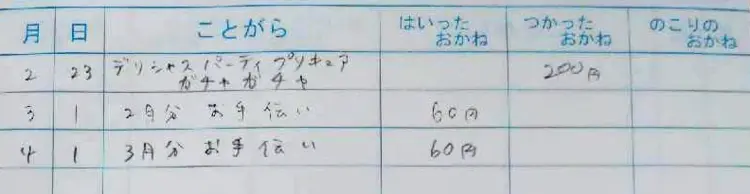 月 日 ことがら はいったおかね つかったおかね のこりのおかね
2 23 デリシャスパーティプリキュア ガチャガチャ 200円
3 1 2月分 お手伝い 60円
4 1 3月分 お手伝い 60円